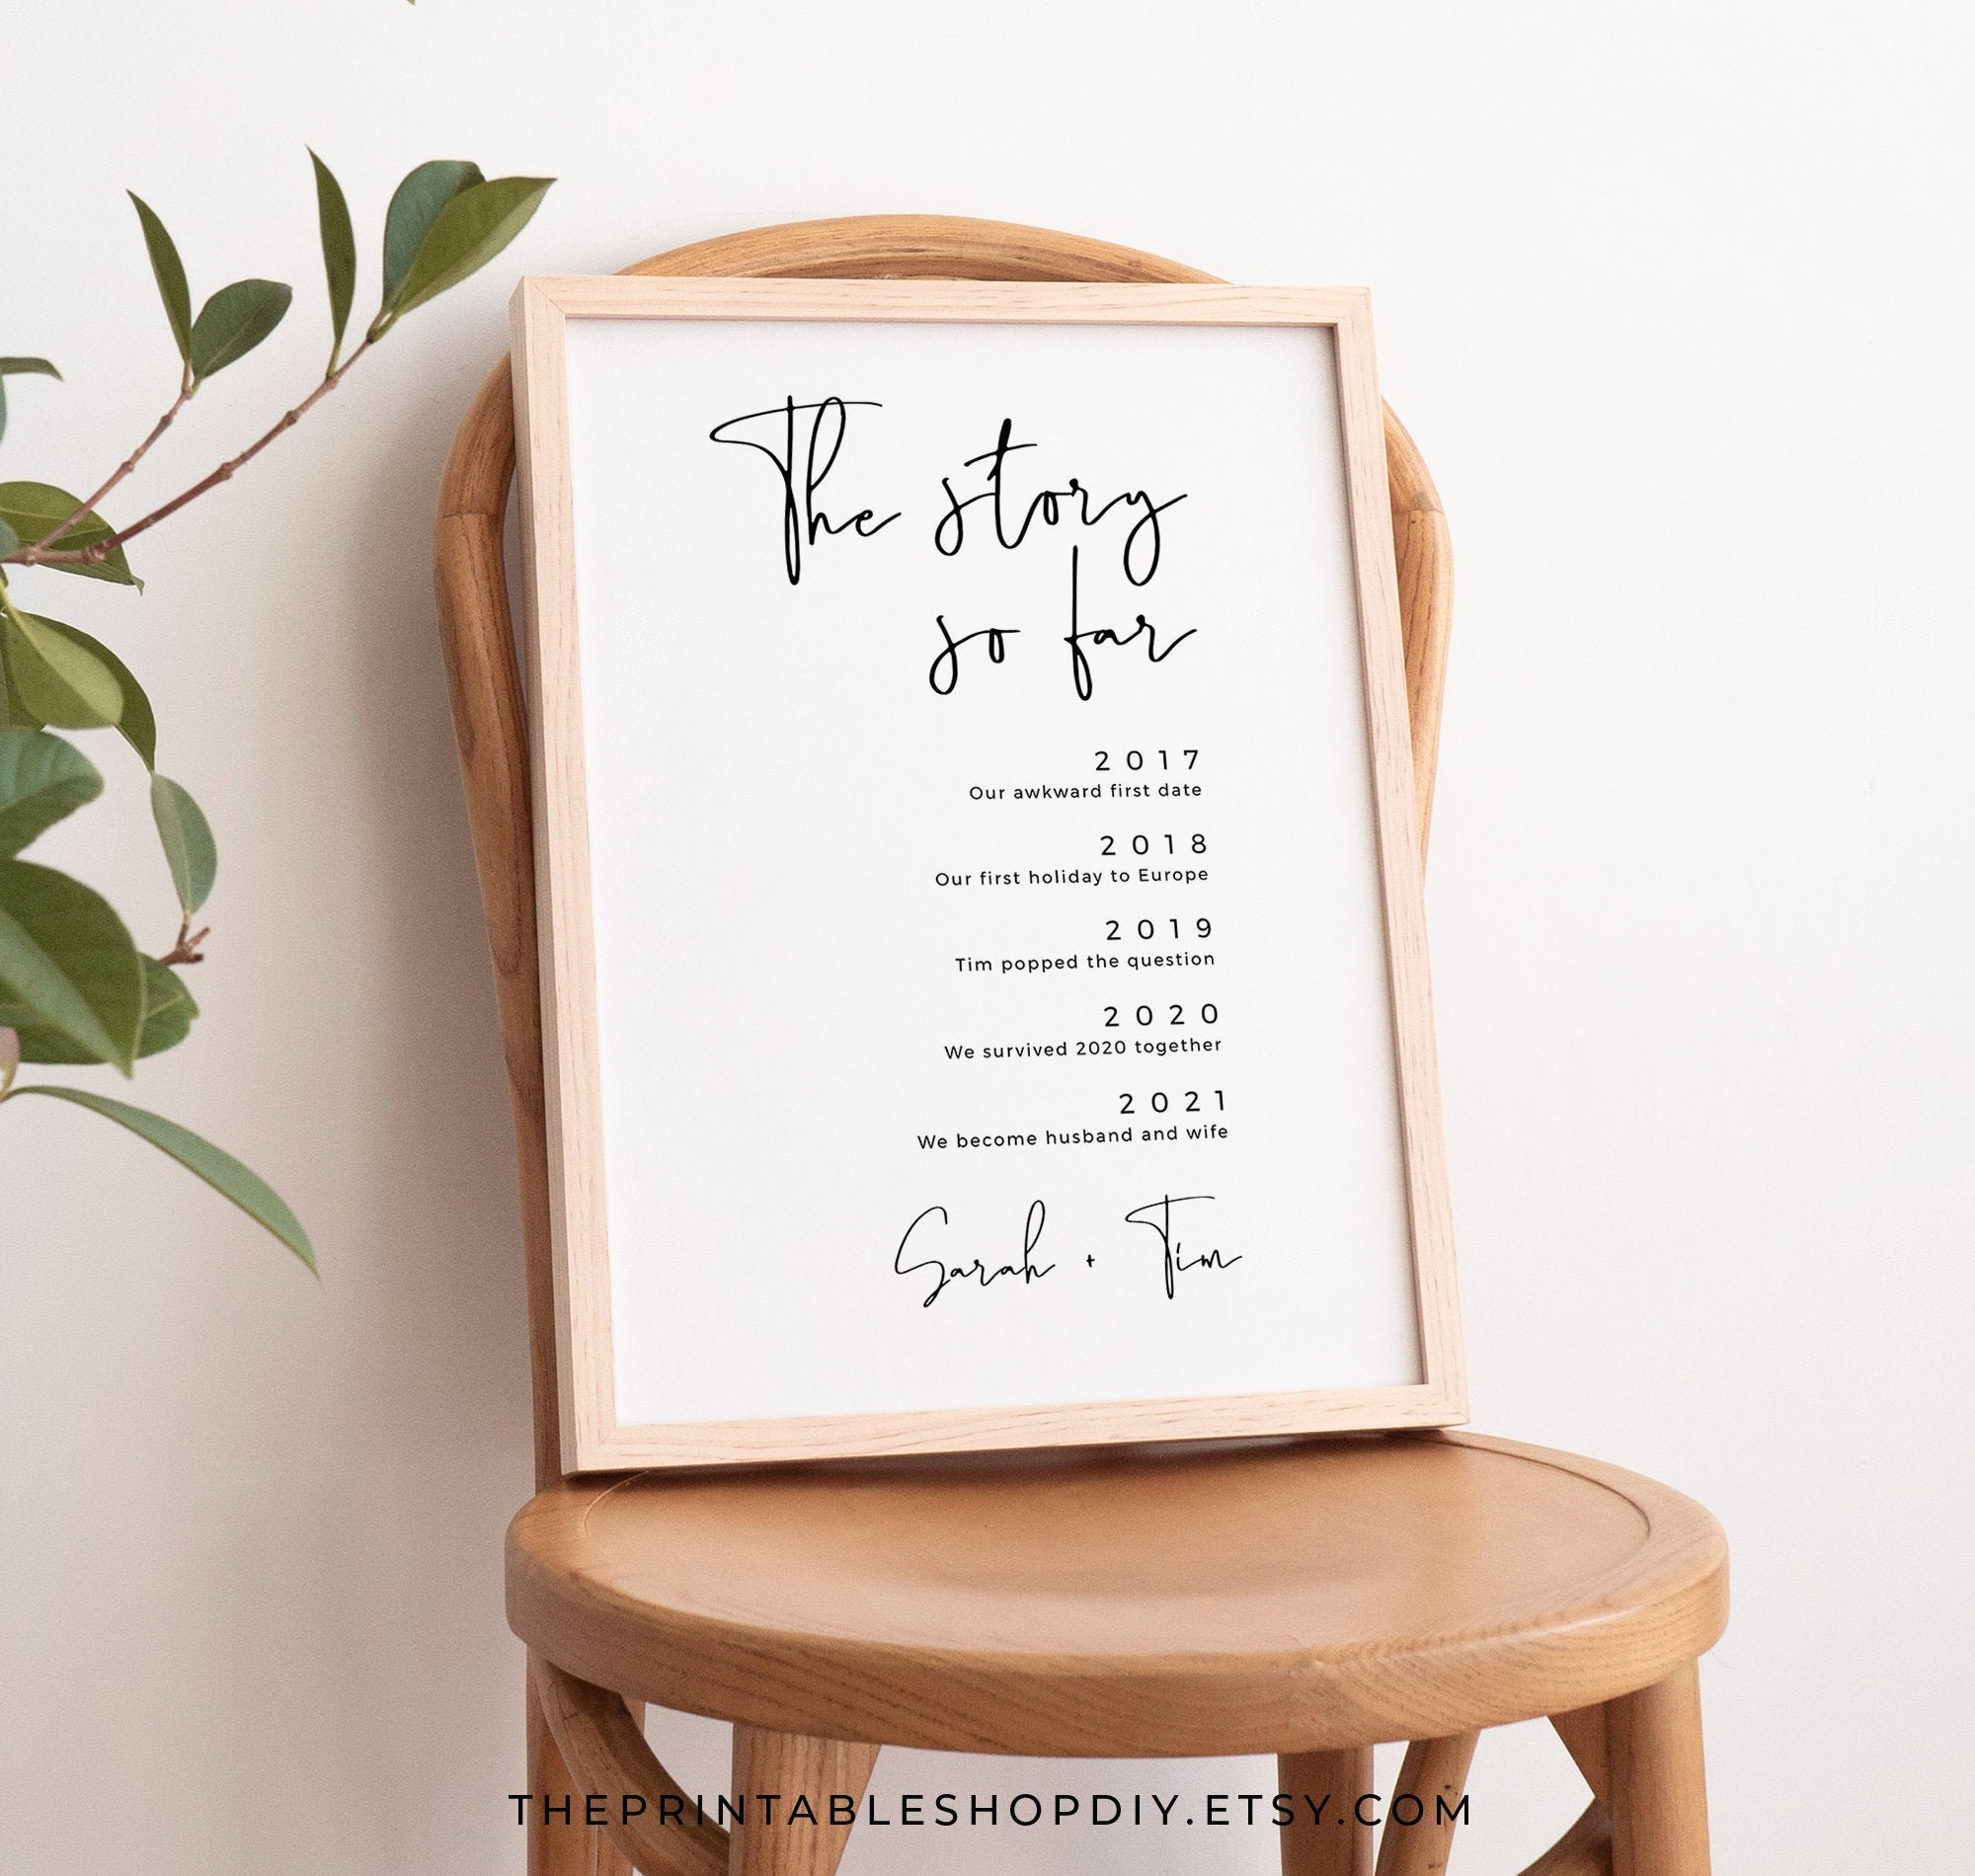 The story
so far
2017
Our awkward first date
2018
Our first holiday to Europe
2019
Tim popped the question
2020
We survived 2020 together
2021
We become husband and wife
Sarah + Tim
THEPRINTABLESHOPDIY.ETSY.COM